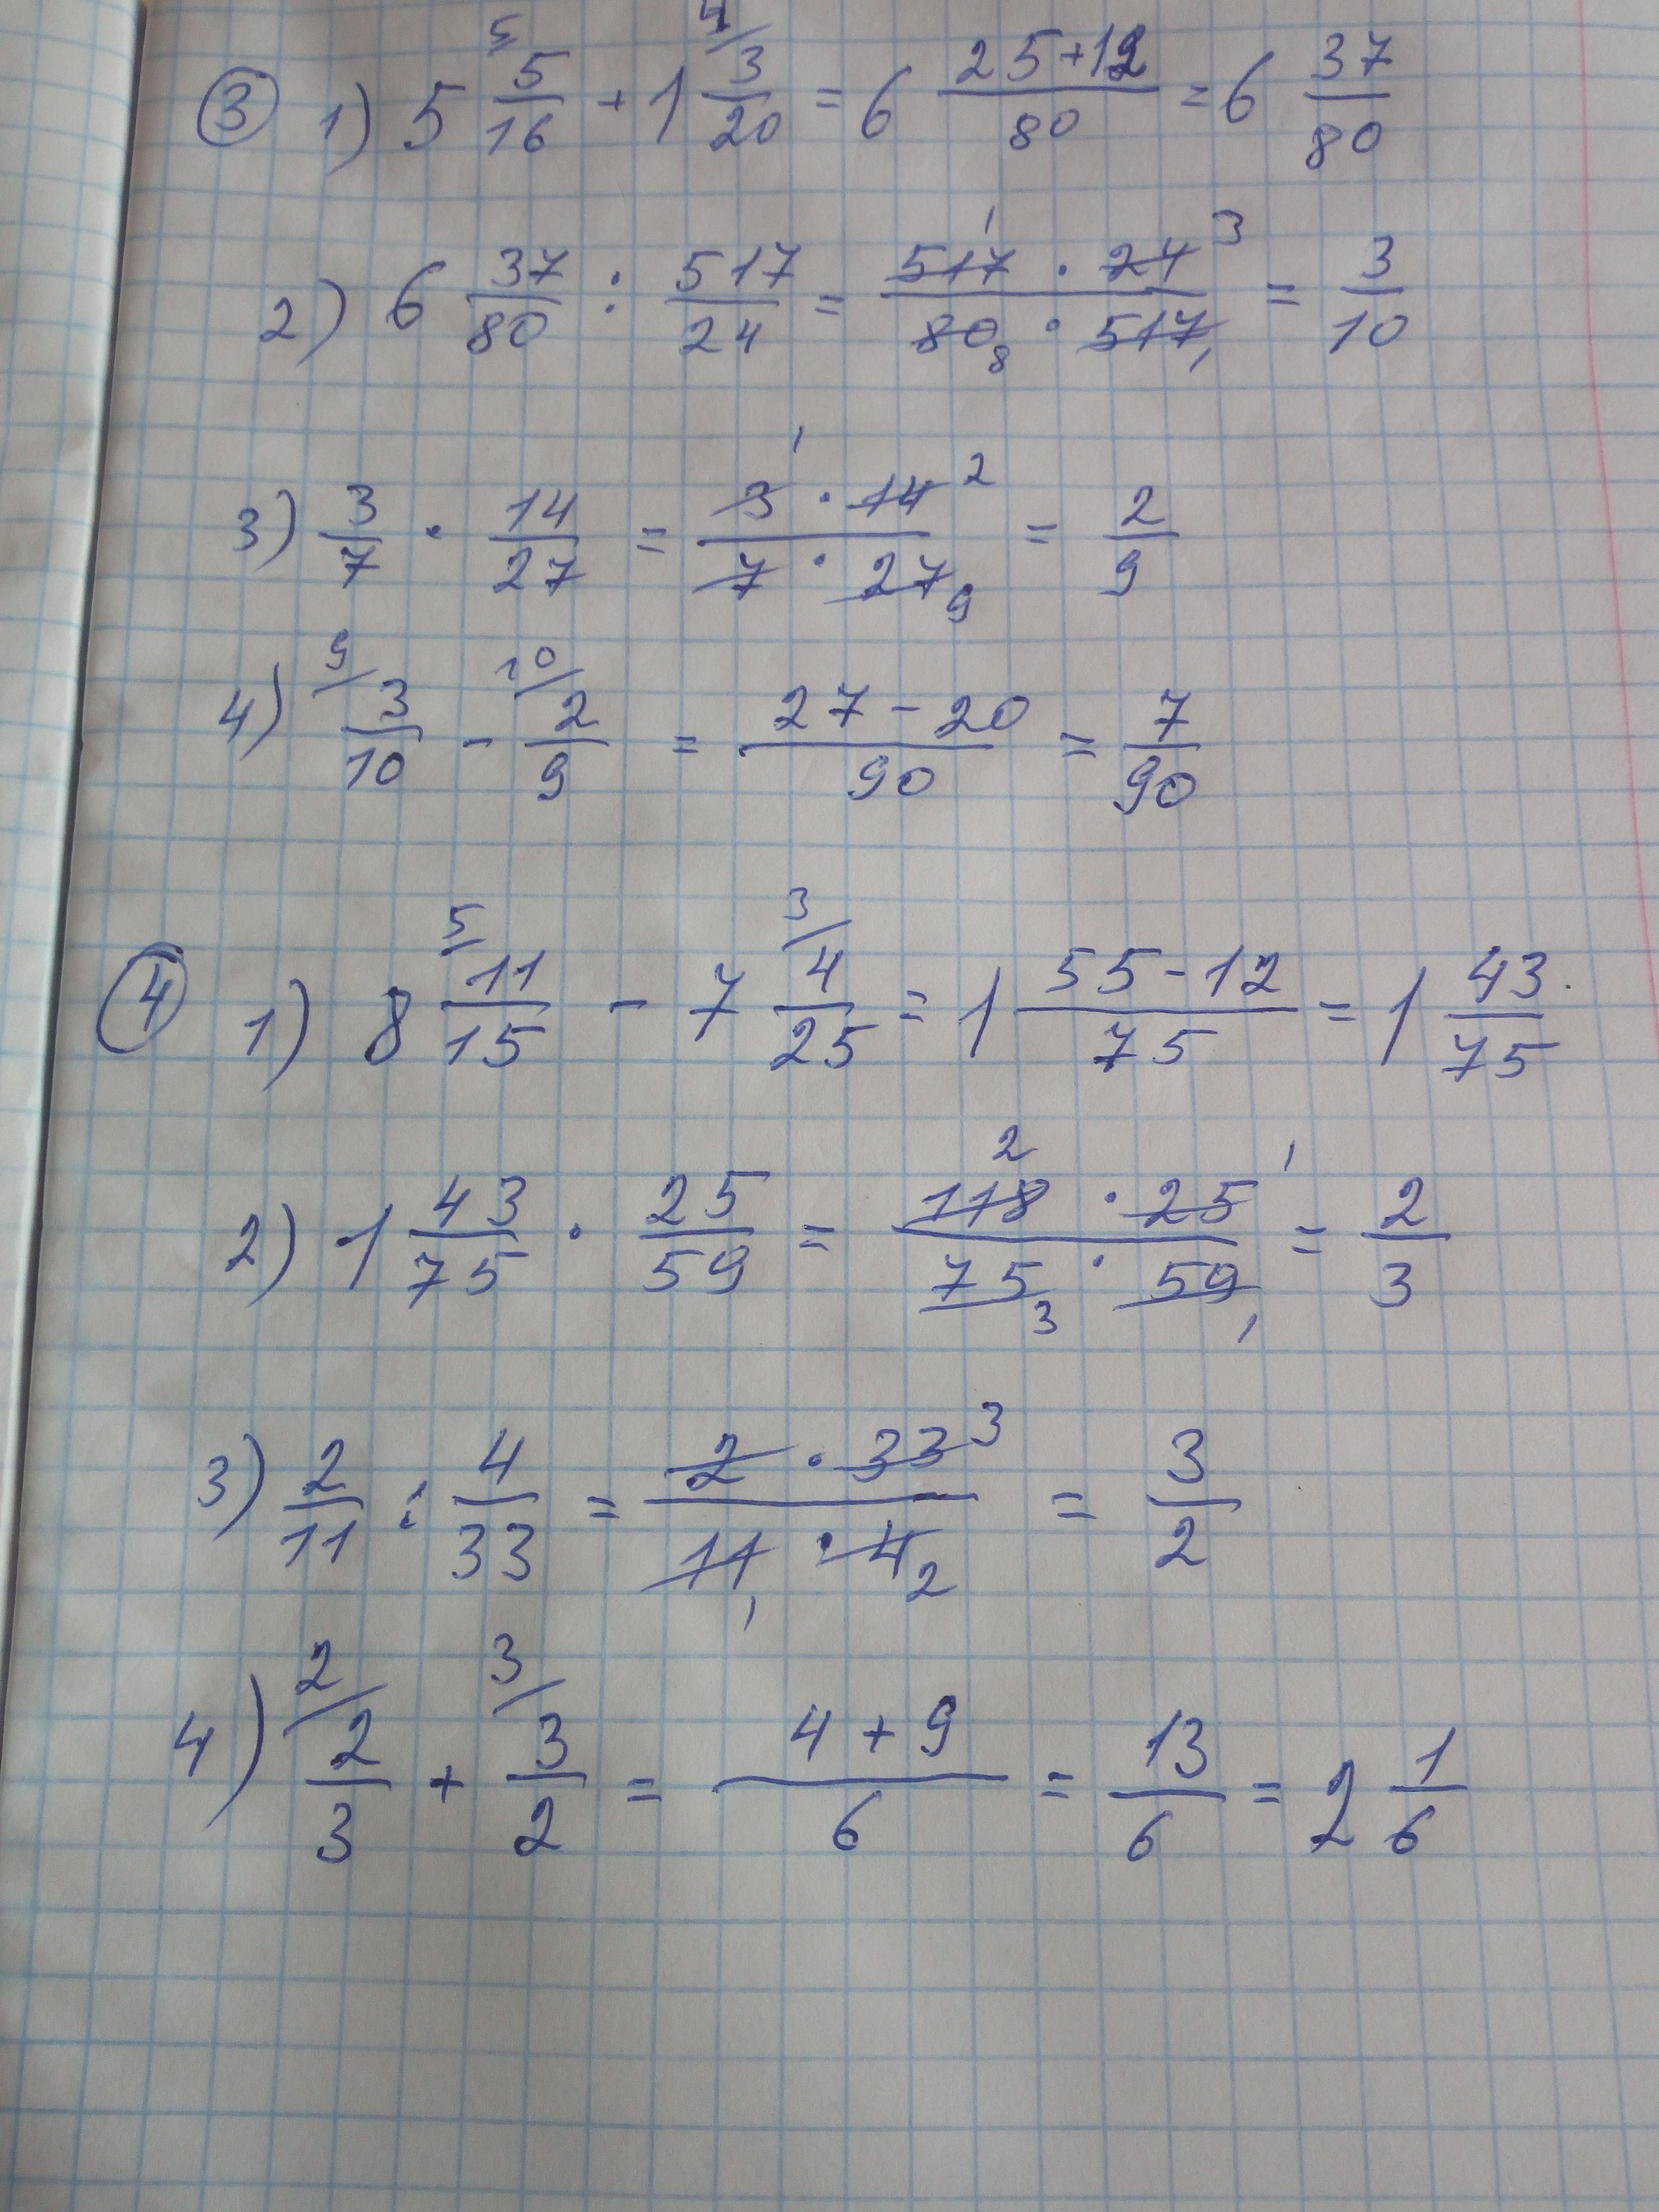 ③ 1) 5 5/16 + 1 3/20 = 6 (25+12)/80 = 6 37/80
2) 6 37/80 : 517/24 = (517 · 24)/(80 · 517) = 3/10
3) 3/7 · 14/27 = (3 · 14)/(7 · 27) = 2/9
4) 3/10 - 2/9 = (27-20)/90 = 7/90
④ 1) 8 11/15 - 7 4/25 = 1 (55-12)/75 = 1 43/75
2) 1 43/75 · 25/59 = (118 · 25)/(75 · 59) = 2/3
3) 2/11 : 4/33 = (2 · 33)/(11 · 4) = 3/2
4) 2/3 + 3/2 = (4+9)/6 = 13/6 = 2 1/6